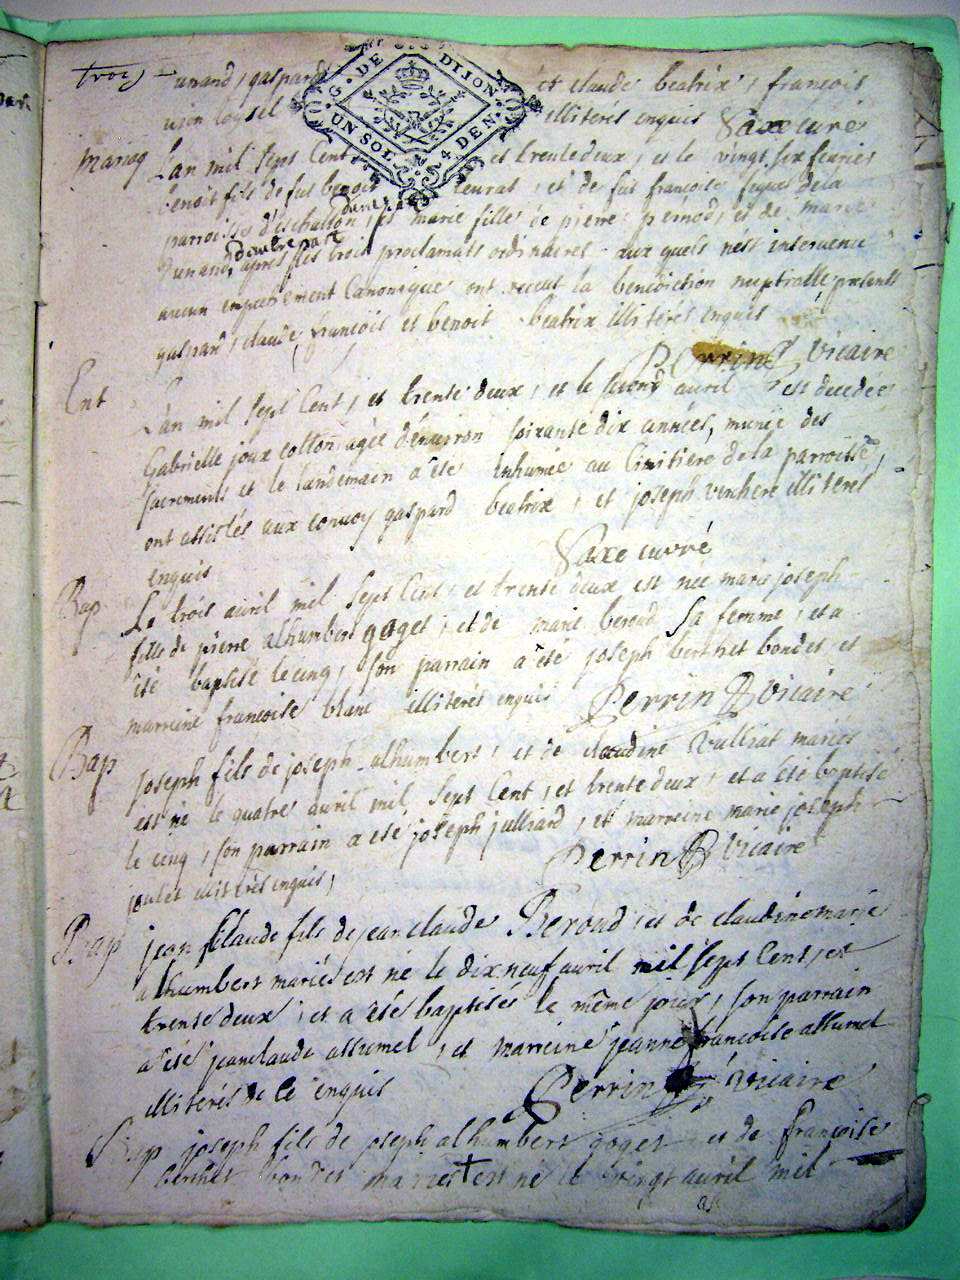 trois
unand, gaspard et claude beatrix, francois
illiterés enquis Saxe curé
G. DE DIJON
UN SOL 4 DEN.
Mariag L'an mil sept Cent et trente deux, et le vingt six feuvrier
benoit fils de fut benoit et de fut francoise de la
parroisse d'eschallon, d'une part et marie fille de pierre pernod, et de marie
unand d'autre part apres les trois proclamats ordinaires aux quels n'est intervenu
aucun empechement Canonique ont receut la benediction nuptialle presents
gaspard, claude, francois et benoit beatrix illiterés enquis
Perrin Vicaire
Ent L'an mil sept Cent, et trente deux, et le second avril est decedee
Gabrielle joux cotton agée d'environ soixante dix années, munie des
sacrements et le landemain a été inhumée au Cimitiere de la parroisse,
ont assistés aux convoy gaspard beatrix, et joseph illiterés
enquis Saxe curré
Bap Le trois avril mil sept Cent, et trente deux est née marie joseph
fille de pierre alhumbert goget, et de marie beroud sa femme, et a
été baptisé le cinq, son parrain a été joseph berthet bondet, et
marreine francoise blanc illiterés enquis Perrin Vicaire
Bap joseph fils de joseph alhumbert, et de claudine Vulliat mariés
est né le quatre avril mil sept Cent, et trente deux, et a été baptisé
le cinq, son parrain a été joseph julliard, et marreine marie joseph
illiterés enquis, Perrin Vicaire
Bap jean claude fils de jean claude Beroud, et de claudine marie
alhumbert mariés est né le dix neuf avril mil sept Cent, et
trente deux, et a été baptisés le même jour, son parrain
a été jean claude allumel, et marreine jeanne francoise allumel
illiterés de ce enquis Perrin Vicaire
Bap joseph fils de joseph alhumbert goget et de francoise
berthet bondet mariés est né le vingt avril mil